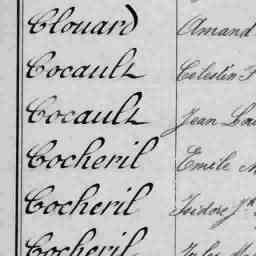 Clouard Amand
Cocault Celestin F
Cocault Jean Lou
Cocheril Emile M
Cocheril Isidore Jn
Cocheril Jules